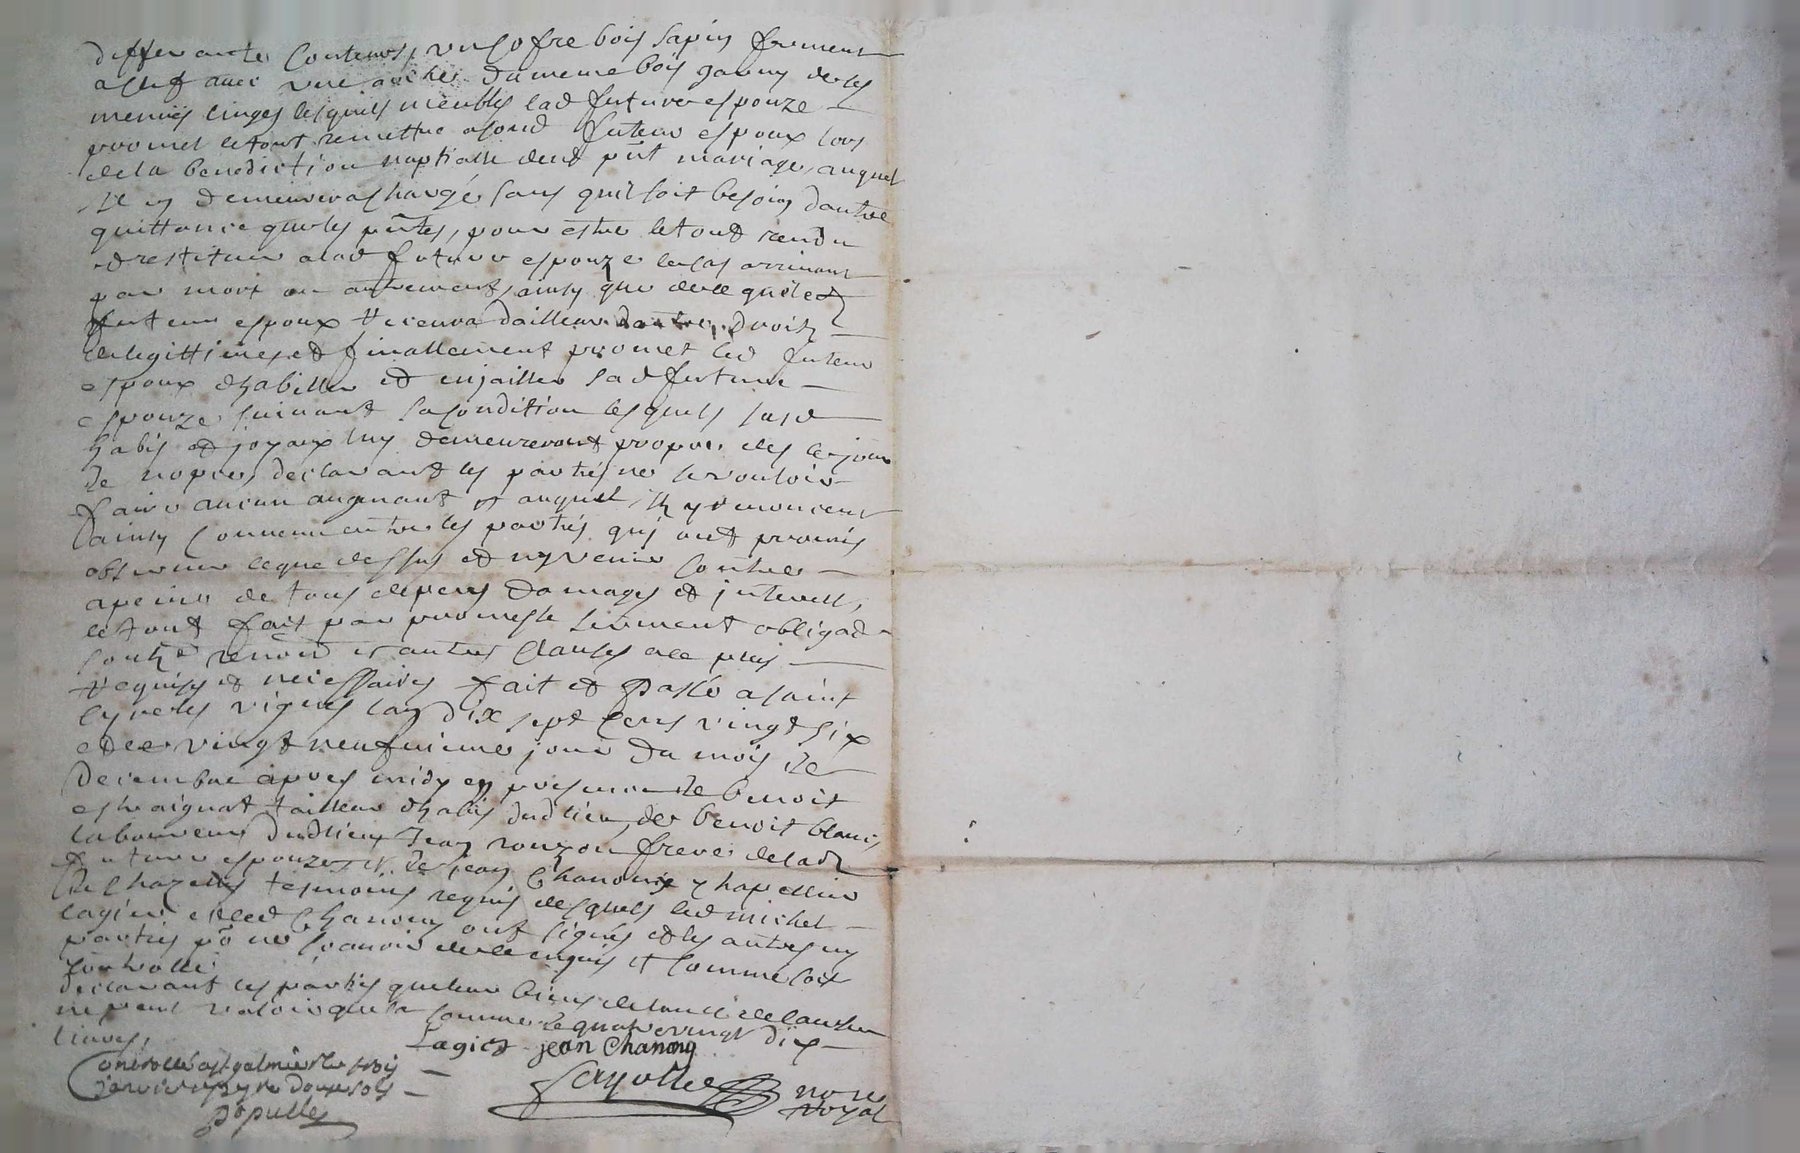 differante Contenus, un cofre bois sapin frement
a clef avec une arche du meme bois garny de ses
menus linges lesquels meubles lad future espouze
promet le tout remettre a sond futeur espoux lors
de la benediction nuptialle dud pnt mariage, auquel
il en demeurera charge sans quil soit besoing dautre
quittance que les pntes, pour estre le tout rendu
et restitue a lad future espouze le cas arrivant
par mort ou autrement, ainsy que de ce que led
futeur espoux recevra dailleur dautre droitz
legittimes et finallement promet led futeur
espoux dhabiller et enjailler sad future
espouze suivant sa condition lesquels susd
habis et joyaux luy demeureront propre des le jour
de nopces, declarant les parties ne se vouloir
faire aucun augmant et auquel ils y renoncent
ainsy Convenu entre les parties qui ont promis
observer ce que dessus et ny venir Contre
a peine de tous depens domages et interests,
le tout fait par promesse serment obligad
soubz renond et autres Clauses a ce
requises et necessaires fait et passé a saint
Cyr les vignes lan dix sept Cens vingt six
et le vingt neufvieme jour du mois de
Decembre apres midy en presence de benoit
tailleur dhabis dud lieu, de benoit blanc
laboureur dud lieu, Jean rouzon frere de lad
future espouze et de jean Chanony
de Chazelles tesmoins requis desquels led michel
lagier et led Chanony ont signés et les autres ny
parties pō ne sçavoir de ce enquis et Comme soit
controllé
declarant les parties que leur biens de lun et de lautre
ne peut valoir que la somme de quatre vingt dix
livres,
Lagier jean Chanony
Controllé a st galmier le
douze sols
populle
fayolle nore
royal